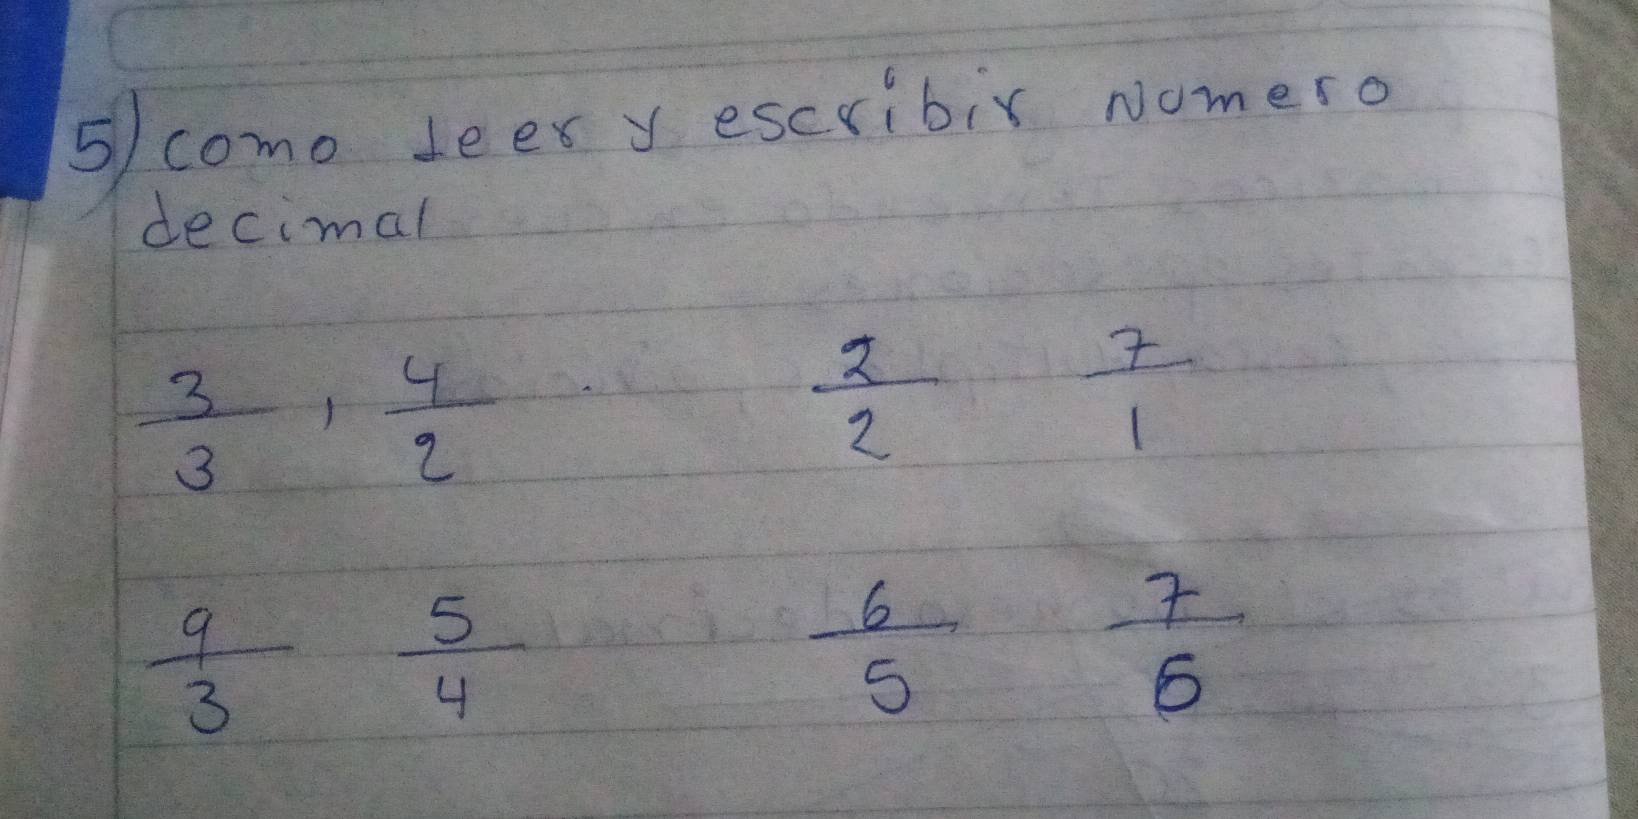 5) como leer y escribir Numero
decimal
3/3, 4/2 2/2 7/1
9/3 5/4 6/5 7/6